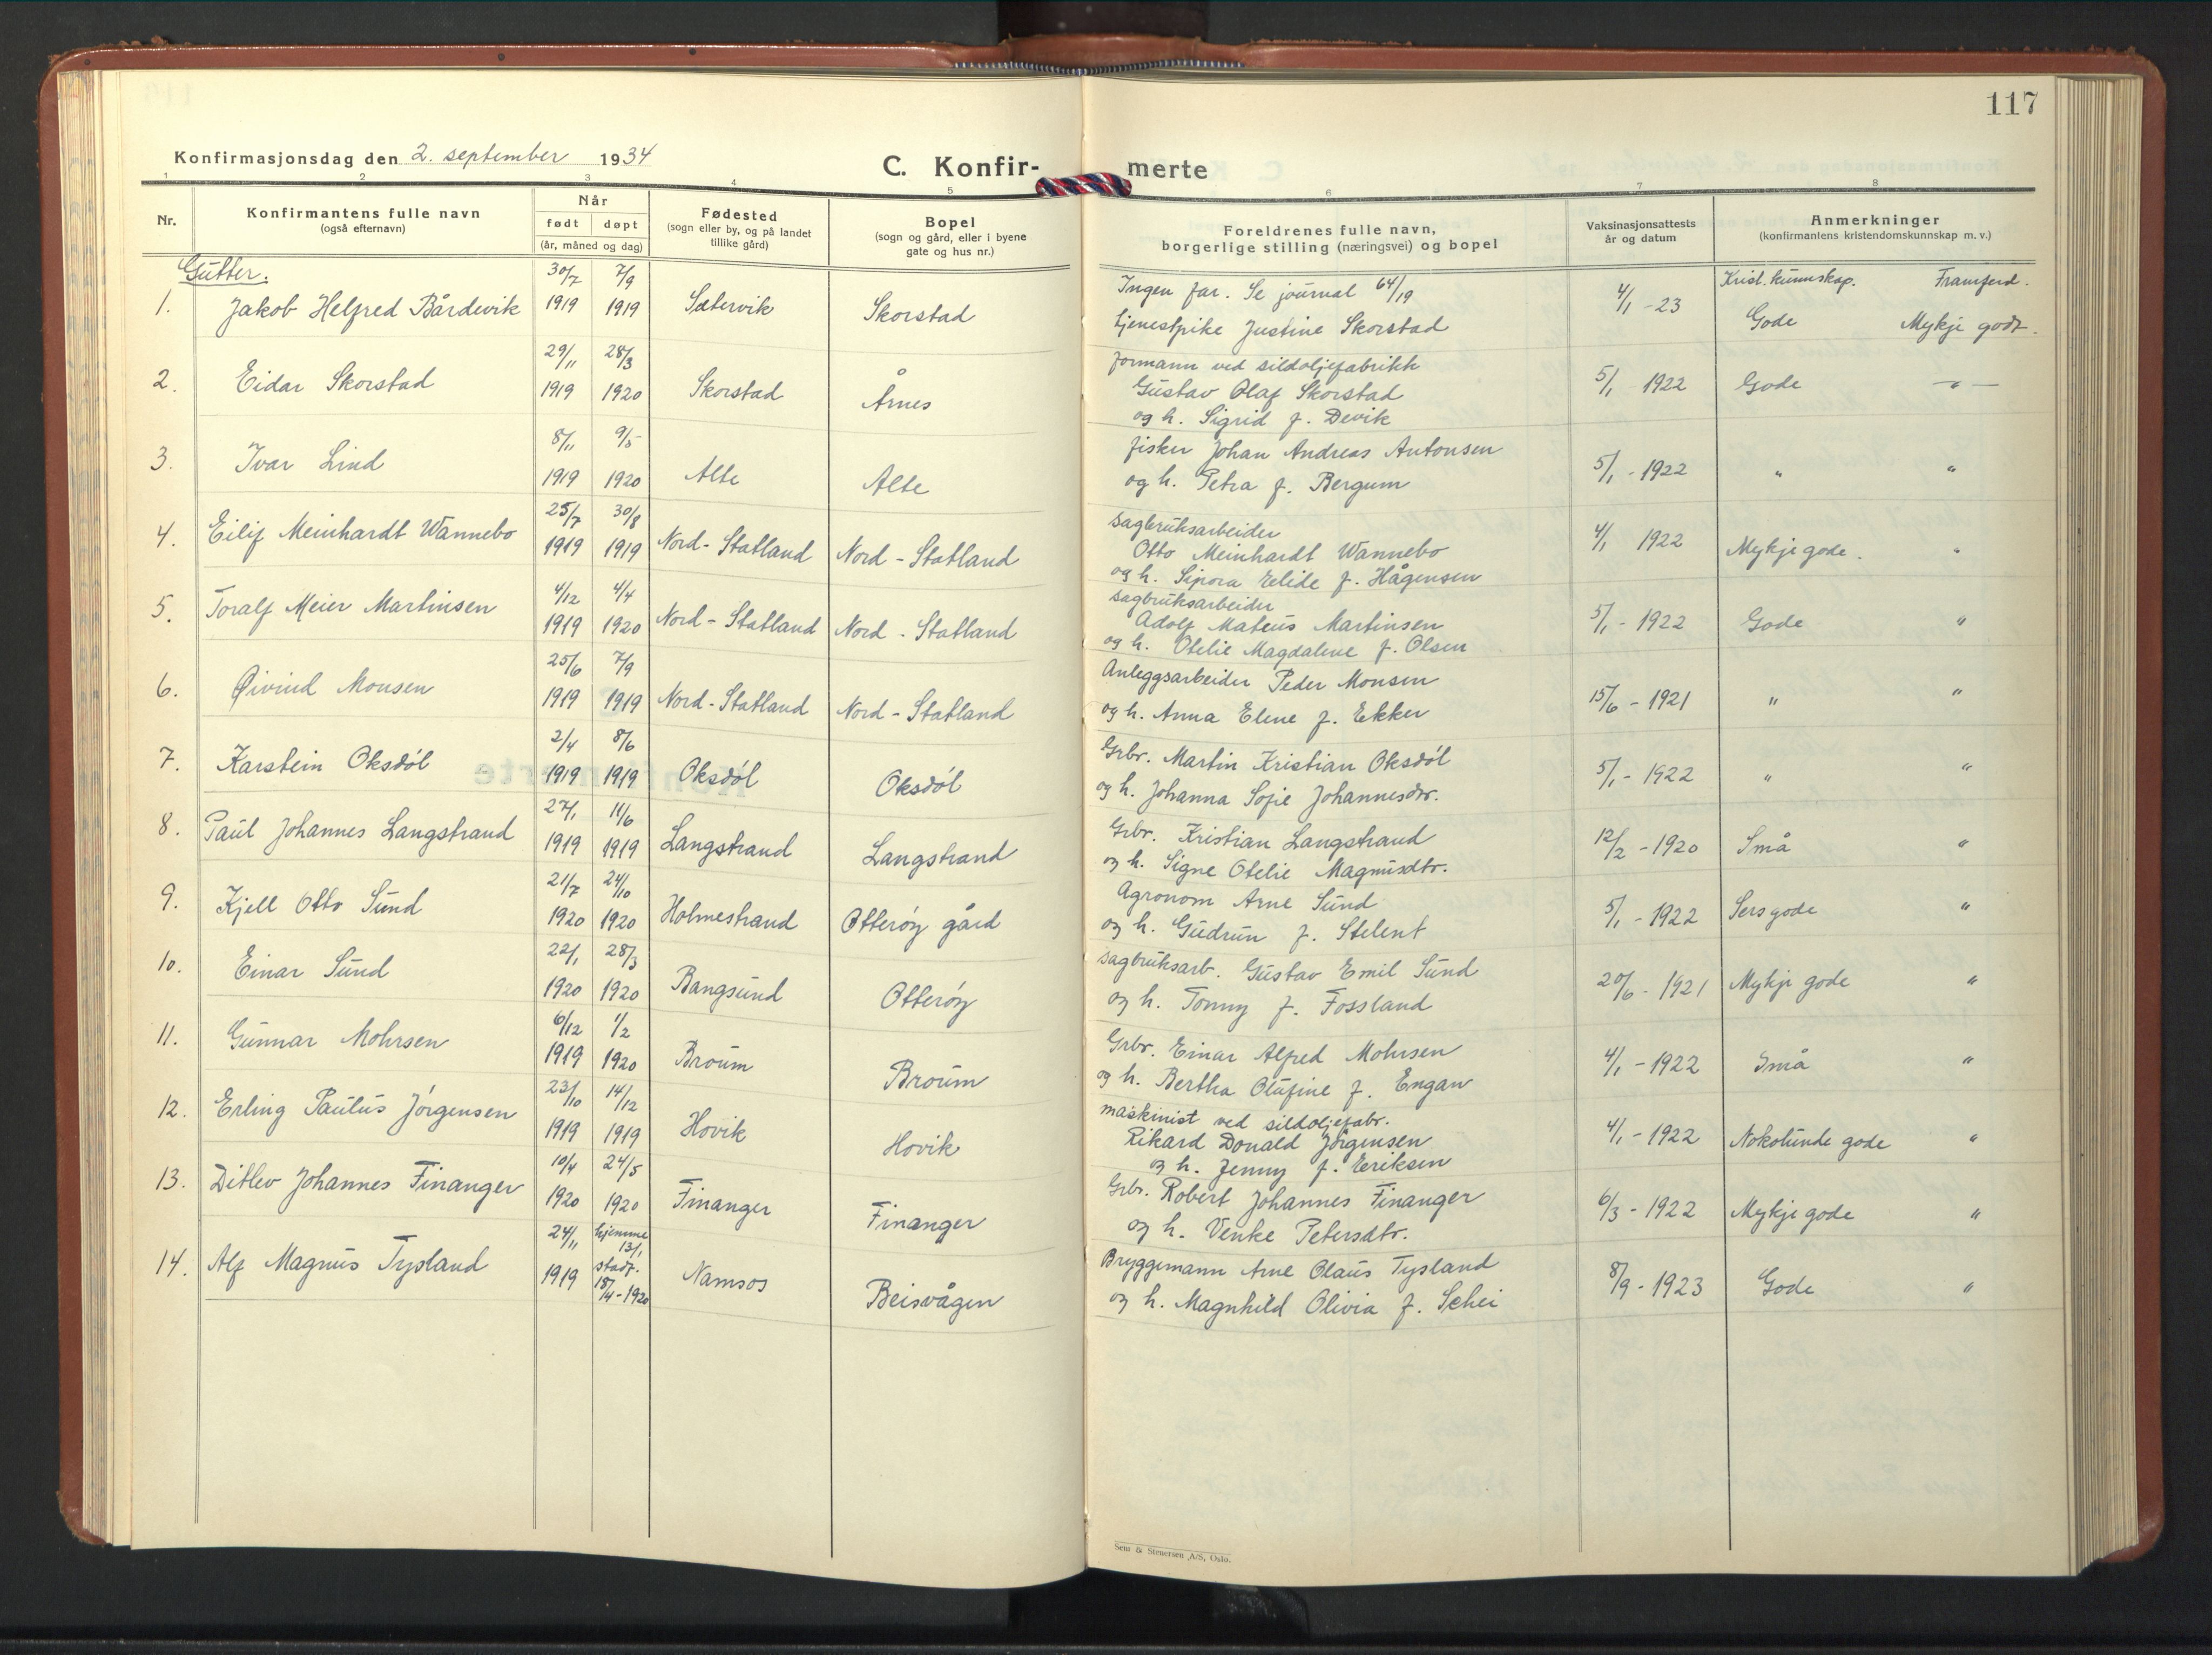 117
Konfirmasjonsdag den 2. september 1934
C. Konfir- merte
1 2 3 4 5 6 7 8
Nr.
Konfirmantens fulle navn
(også efternavn)
Når
født døpt
(år, måned og dag)
Fødested
(sogn eller by, og på landet
tillike gård)
Bopel
(sogn og gård, eller i byene
gate og hus nr.)
Foreldrenes fulle navn,
borgerlige stilling (næringsvei) og bopel
Vaksinasjonsattests
år og datum
Anmerkninger
(konfirmantens kristendomskunnskap m. v.)
Gutter.
Krist. kunnskap. Framferd.
1. Jakob Helfred Bårdevik 30/7 1919 7/9 1919 Sætervik Skorstad
Ingen far. Se journal 64/19
tjenestpike Justine Skorstad
4/1 - 23 Gode Mykje godt.
2. Eidar Skorstad 29/11 1919 28/3 1920 Skorstad Årnes
formann ved sildoljefabrikk
Gustav Olaf Skorstad
og h. Sigrid f. Devik
5/1 - 1922 Gode —"—
3. Ivar Lind 8/11 1919 9/5 1920 Alte Alte
fisker Johan Andreas Antonsen
og h. Petra f. Bergum
5/1 - 1922 " "
4. Eilif Meinhardt Wannebo 25/7 1919 30/8 1919 Nord-Statland Nord-Statland
sagbruksarbeider
Otto Meinhardt Wannebo
og h. Sipora Elide f. Hågensen
4/1 1922 Mykje gode. "
5. Toralf Meier Martinsen 4/12 1919 4/4 1920 Nord-Statland Nord-Statland
sagbruksarbeider
Adolf Mateus Martinsen
og h. Otelie Magdalene f. Olsen
5/1 - 1922 Gode "
6. Øivind Monsen 25/6 1919 7/9 1919 Nord-Statland Nord-Statland
Anleggsarbeider Peder Monsen
og h. Anna Elene f. Ekker
15/6 - 1921 " "
7. Karstein Oksdøl 2/4 1919 8/6 1919 Oksdøl Oksdøl
Grbr. Martin Kristian Oksdøl
og h. Johanna Sofie Johannesdtr.
5/1 - 1922 " "
8. Paul Johannes Langstrand 27/1 1919 11/6 1919 Langstrand Langstrand
Grbr. Kristian Langstrand
og h. Signe Otelie Magnusdtr.
12/2 - 1920 Små "
9. Kjell Otto Sund 21/7 1920 24/10 1920 Holmestrand Otterøy gård
Agronom Arne Sund
og h. Gudrun f. Stelent
5/1 - 1922 Sers gode "
10. Einar Sund 22/1 1920 28/3 1920 Bangsund Otterøy
sagbruksarb. Gustav Emil Sund
og h. Tonny f. Fossland
20/6 - 1921 Mykje gode "
11. Gunnar Mohrsen 6/12 1919 1/2 1920 Broum Broum
Grbr. Einar Alfred Mohrsen
og h. Bertha Olufine f. Engan
4/1 - 1922 Små "
12. Erling Paulus Jørgensen 23/10 1919 14/12 1919 Hovik Hovik
maskinist ved sildoljefabr.
Rikard Donald Jørgensen
og h. Jenny f. Eriksen
4/1 - 1922 Nokolunde gode "
13. Ditlev Johannes Finanger 10/4 1920 24/5 1920 Finanger Finanger
Grbr. Robert Johannes Finanger
og h. Venke Petersdtr.
6/3 - 1922 Mykje gode "
14. Alf Magnus Tysland 24/11 1919 hjemme 13/1, stadf. 18/4 - 1920 Namsos Beisvågen
Bryggemann Arne Olaus Tysland
og h. Magnhild Olivia f. Schei
8/9 - 1923 Gode "
Sem & Stenersen A/S, Oslo.